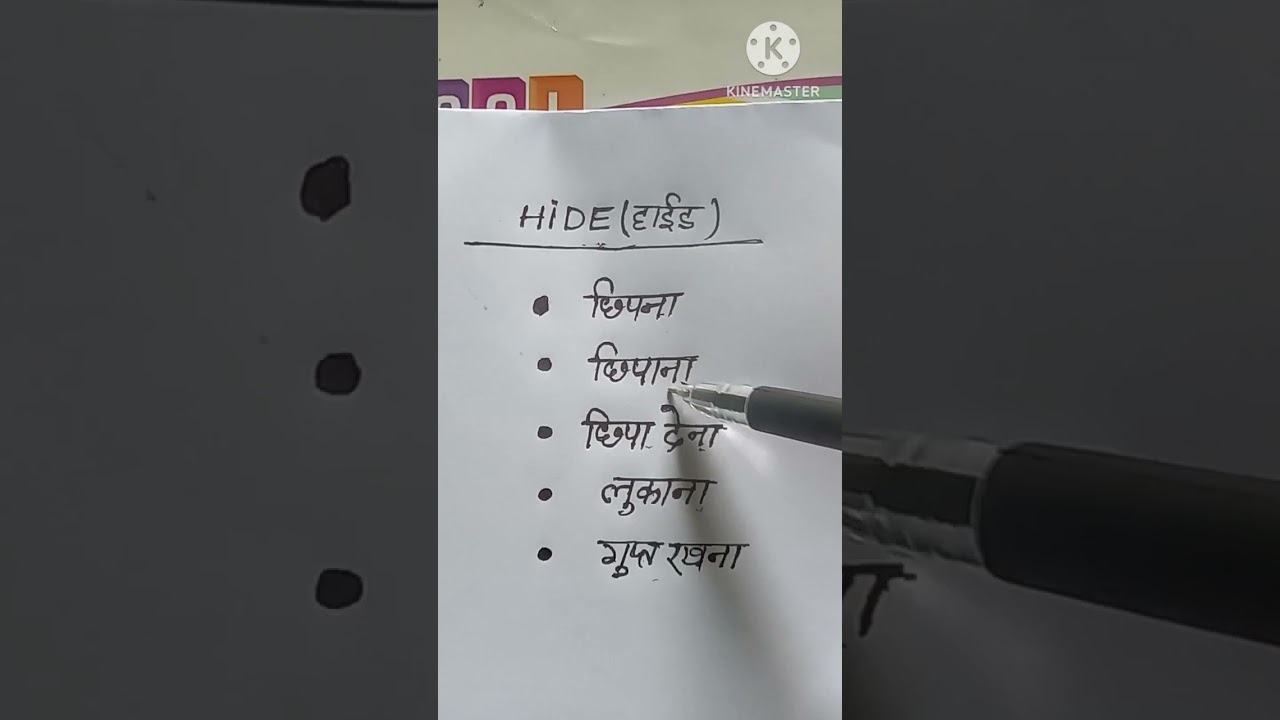 KINEMASTER
HiDE (हाईड)
• छिपना
• छिपाना
• छिपा देना
• लुकाना
• गुप्त रखना